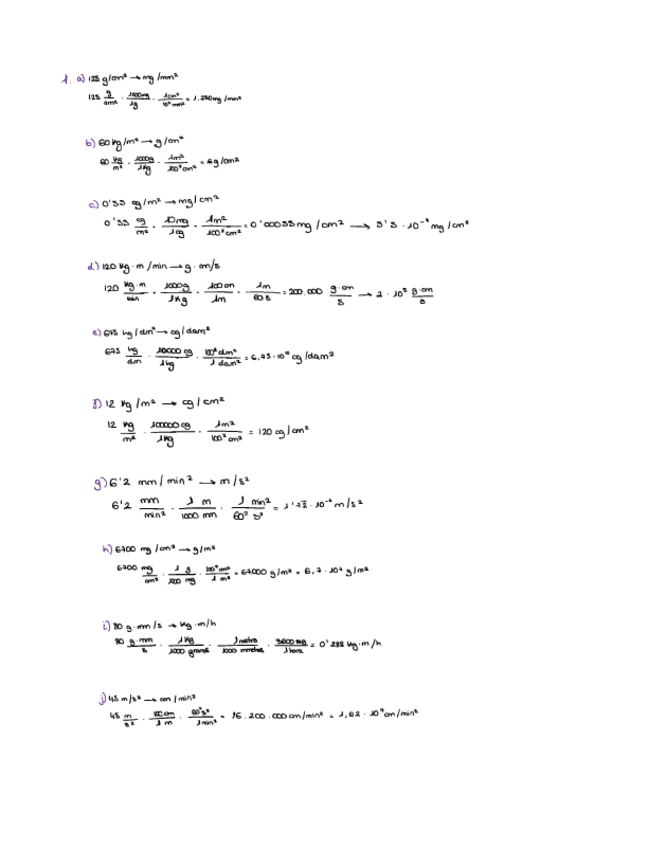 1. a) 125 g/cm² → mg/mm²
125 g/cm² · 1000mg/1g · 1cm²/10² mm² = 1.250mg/mm²
b) 60 Kg/m² → g/cm²
60 kg/m² · 1000g/1Kg · 1m²/100² cm² = 6g/cm²
c) 0'55 cg/m² → mg/cm²
0'55 cg/m² · 10mg/1cg · 1m²/100² cm² = 0'00055mg/cm² → 5'5 · 10⁻⁴ mg/cm²
d) 120 Kg·m/min → g·cm/s
120 Kg·m/min · 1000g/1Kg · 100cm/1m · 1m/60s = 200.000 g·cm/s → 2 · 10⁵ g·cm/s
e) 675 kg/dm² → cg/dam²
675 kg/dm · 10000 cg/1kg · 100² dm²/1 dam² = cg/dam²
f) 12 Kg/m² → cg/cm²
12 Kg/m² · 10000 cg/1Kg · 1m²/100² cm² = 120 cg/cm²
g) 6'2 mm/min² → m/s²
6'2 mm/min² · 1 m/1000 mm · 1 min²/60² s² = m/s²
h) 6700 mg/cm² → g/m²
6700 mg/cm² · 1 g/1000 mg · 100² cm²/1 m² = 67000 g/m² = 6,7 · 10⁴ g/m²
i) 80 g·mm/s → Kg·m/h
80 g·mm/s · 1Kg/1000 grams · 1metro/1000 · /1hora = 0'288 Kg·m/h
j) 45 m/s² → cm/min²
45 m/s² · 100cm/1m · 60² s²/1min² = 16.200.000cm/min² = 1,62 · 10⁷ cm/min²